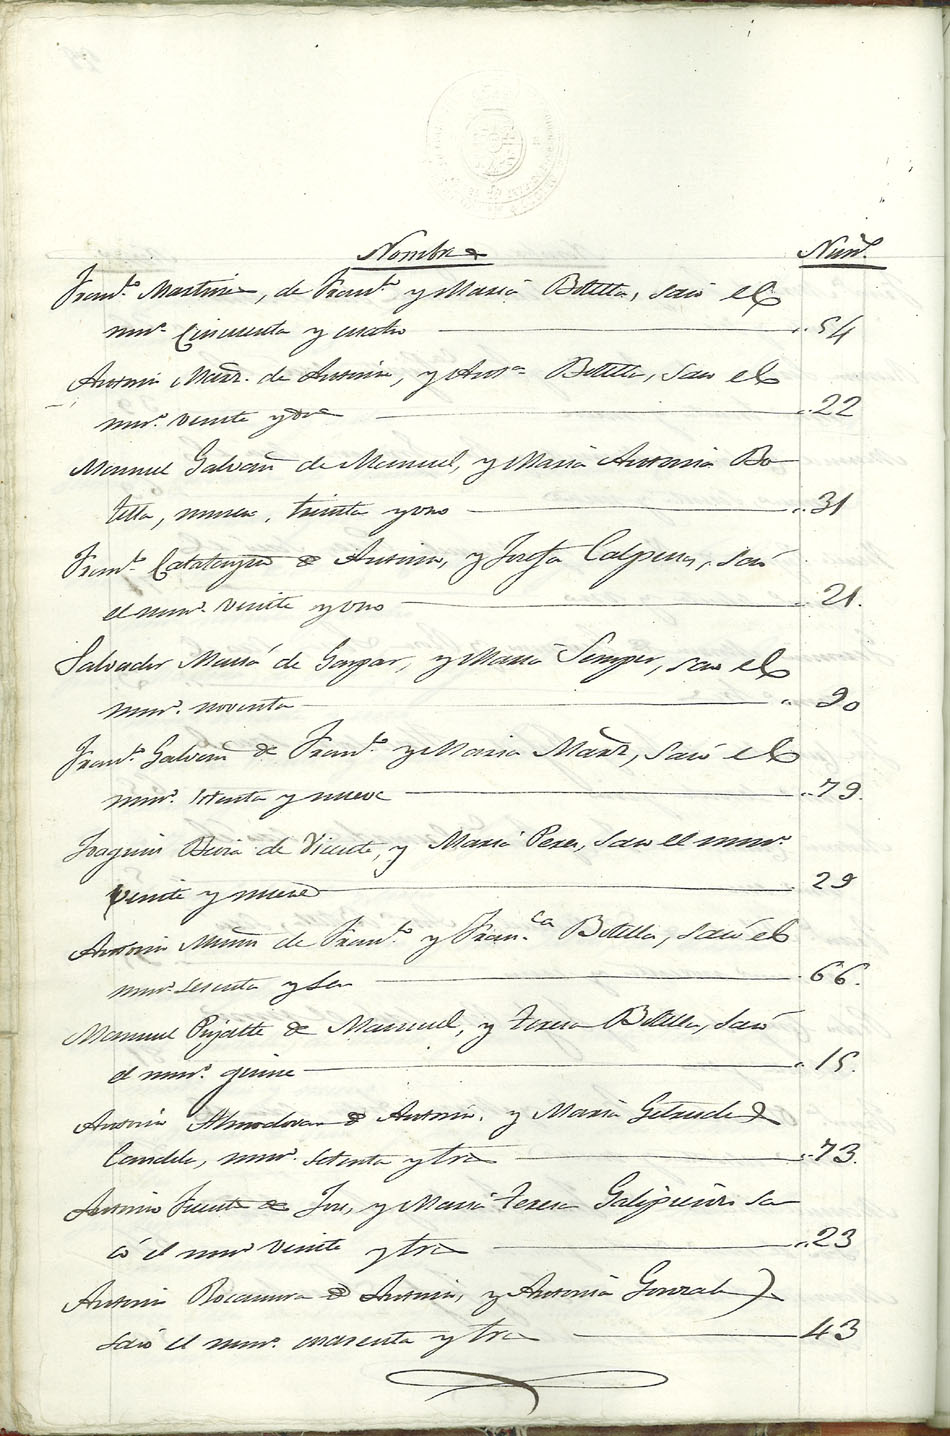 Nombres Núm.
Fran.co Martinez, de Fran.co y Maria Botella, sacó el
num.o Cincuenta y cuatro 54
Antonio Marz. de Antonio, y Ant.a Botella, saco el
num.o veinte y dos 22
Manuel Galvañ de Manuel, y Maria Antonia Bo
tella, numero, treinta y uno 31
Fran.co Calatayud de Antonio, y Josefa Calpena, sacó
el num.o veinte y uno 21.
Salvador de Gaspar, y Maria Semper, saco el
num.o noventa 90
Fran.co Galvañ de Fran.co y Maria Marz, sacó el
num.o setenta y nueve 79.
Joaquin de Vicente, y Maria Perez, saco el num.o
veinte y nueve 29
Antonio de Fran.co y Fran.ca Botella, sacó el
num.o sesenta y seis 66.
Manuel de Manuel, y Teresa Botella, sacó
el num.o quince 15.
Antonio Almodovar de Antonio, y Maria Getrudes
Candela, num.o setenta y tres 73.
Antonio de Jose, y Maria Teresa Galipienso sa
có el num.o veinte y tres 23
Antonio Rocamora de Antonio, y Antonia Gonzalez
sacó el num.o cuarenta y tres 43